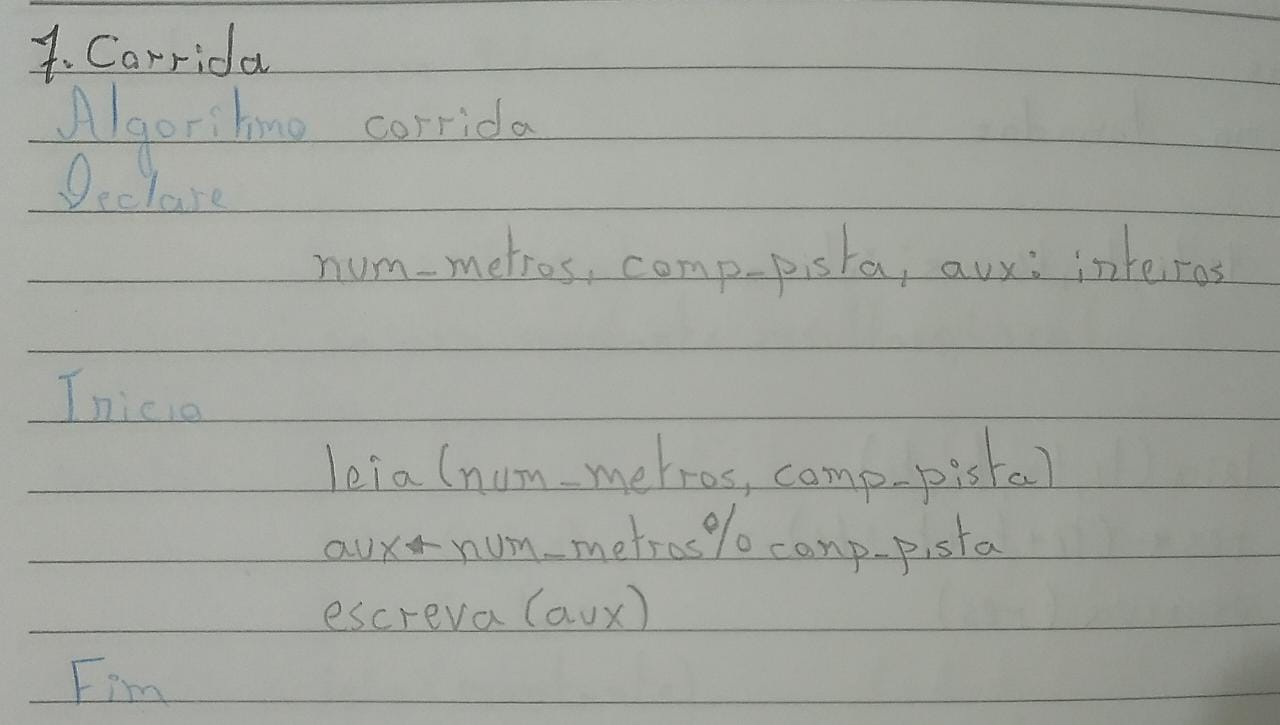 7. Corrida
Algoritmo corrida
Declare
num_metros, comp_pista, aux: inteiros
Inicio
leia (num_metros, comp_pista)
aux ← num_metros % comp_pista
escreva (aux)
Fim